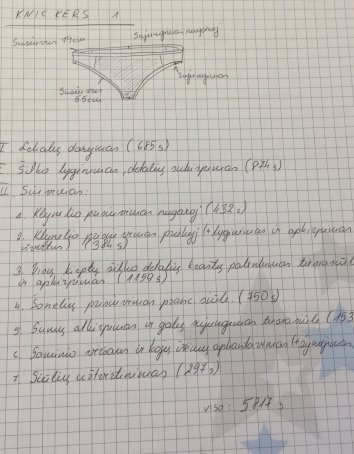 KNICKERS 1
Susiuvimas 79cm
Sujungimas nugaroj
Sujungimas
Susiuvimas
55cm
I Detalių darymas (685 s)
I Šilko lyginimas, detalių sukirpimas (874 s)
III Siuvimas:
1. Klyno prisiuvimas nugaroj (432 s)
2. prisiuvimas priekyj (+ lyginimas ir apkirpimas
(384 s)
3. šilko detalių kraštų palenkimas
ir apkirpimas. (1159 s)
4. Šonelių prisiuvimas pranc. siūle. (750 s)
5. Gumų atkirpimas ir galų sujungimas (153
6. viršaus ir kojų (+
7. Siūlių užtvirtinimas (297 s)
viso: 5817 s